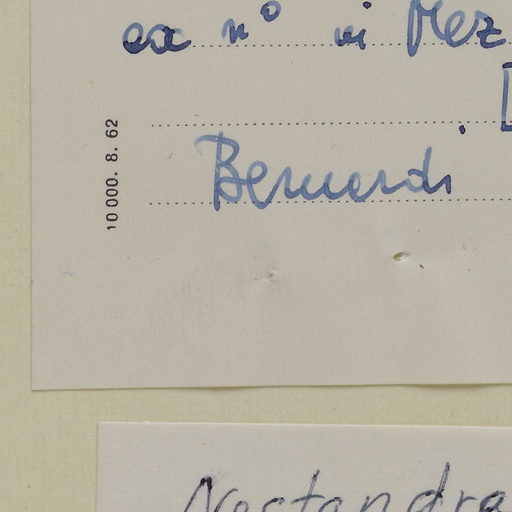 ex n° in Mez
[
Bernardi
10 000. 8. 62
Nostandra